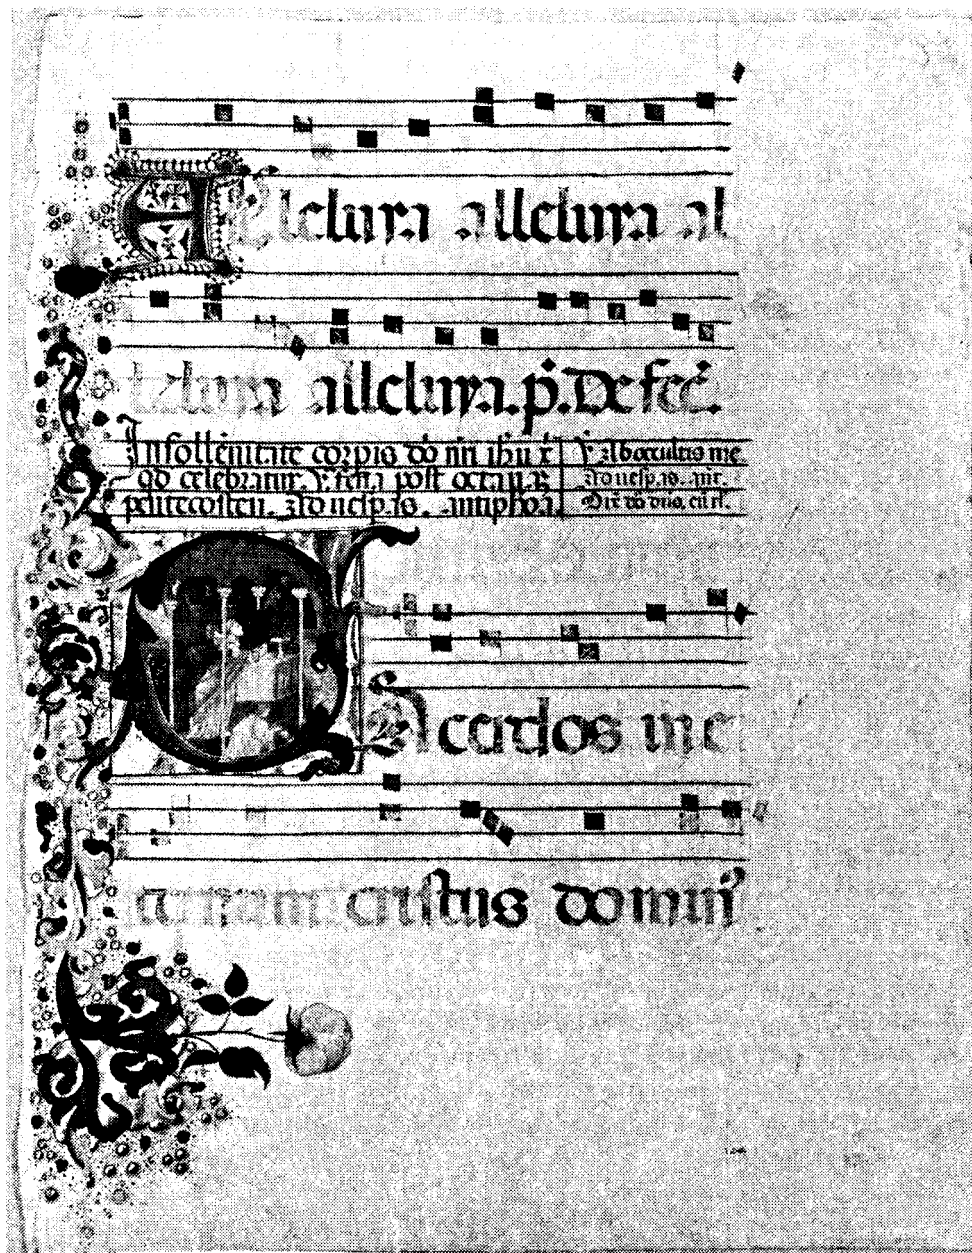 Alleluya alleluya al
leluya alleluya. p̄. De fer̄.
In sollēnitate corpis dō nri ihū x̄
qd celebratur. v. feria post octau. R
pentecosten. Ad uesp̄as. antiphōa
Ab occultis me
Ad uesp̄as. añt.
Dix̄ dō dno, cū rł.
Sacerdos in e
ternum cristus domin̄